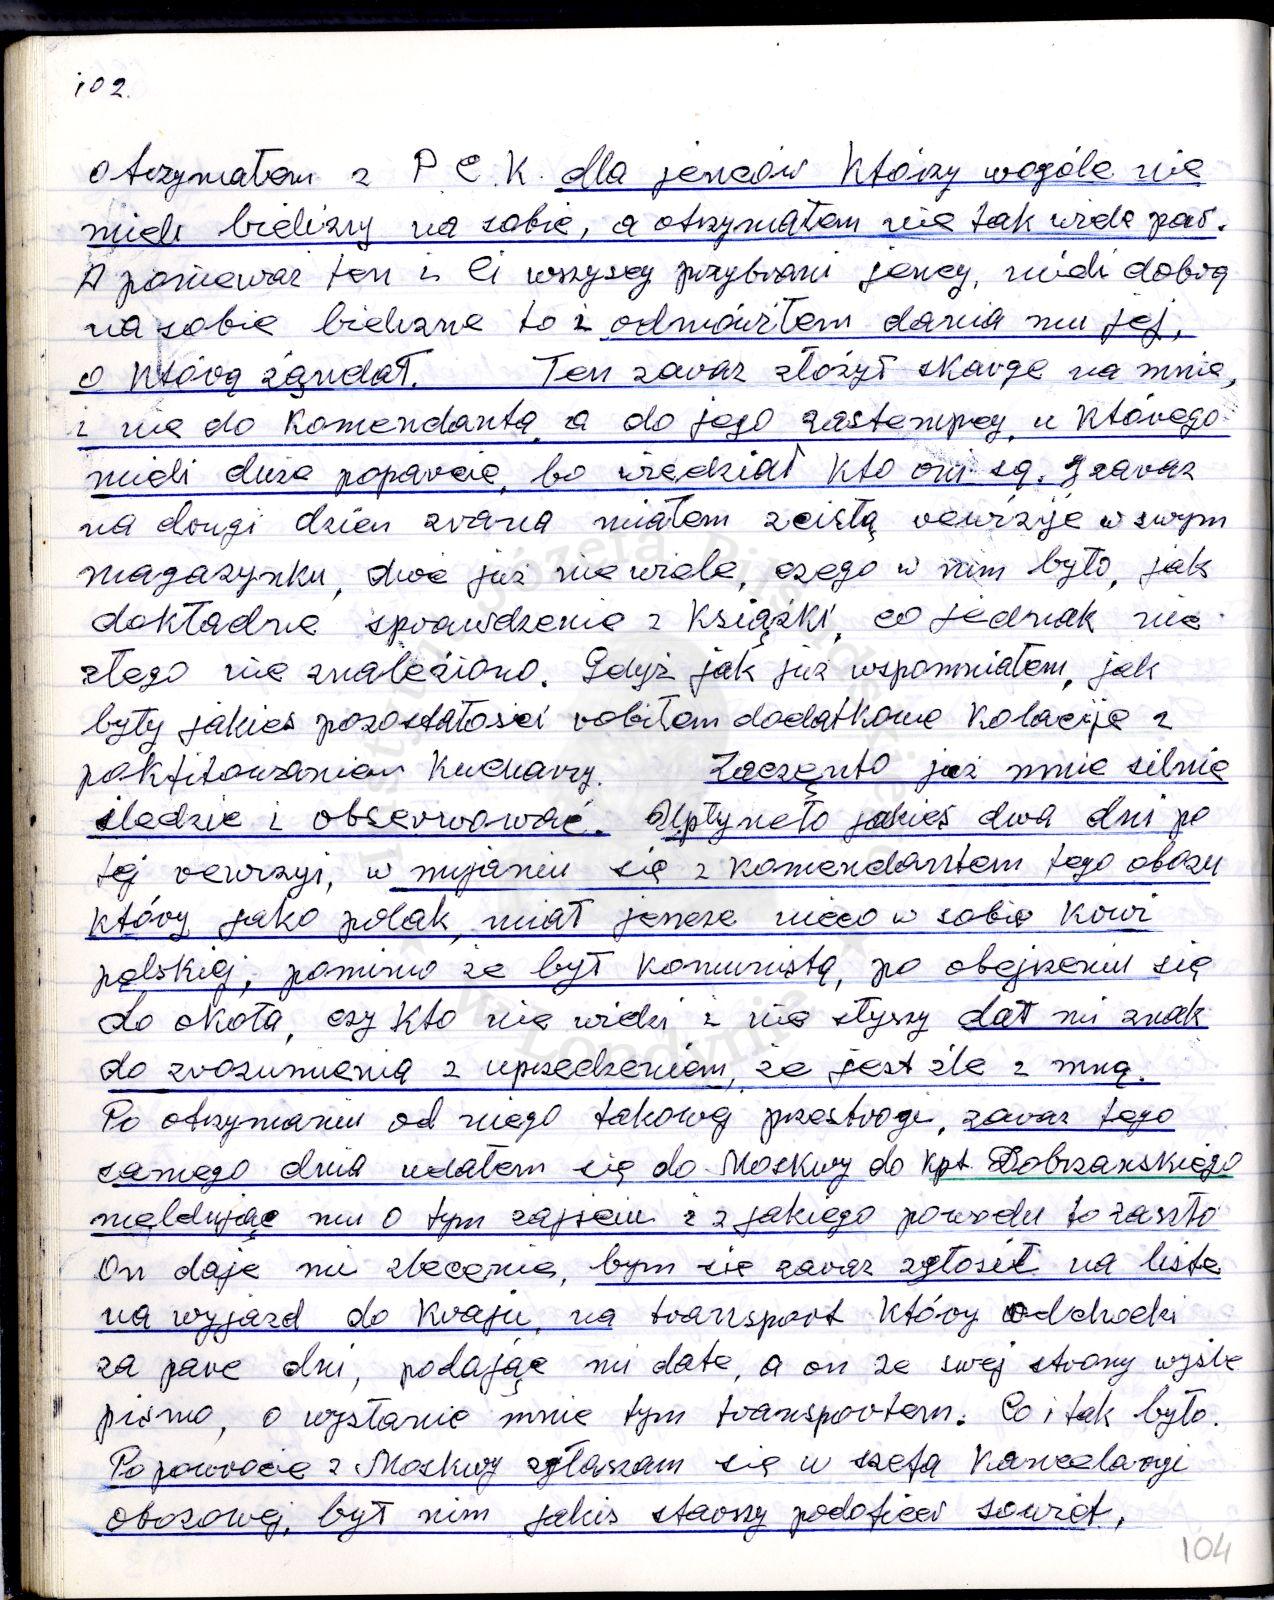 102.
otrzymałem z P.C.K. dla jenców którzy wogóle nie
mieli bielizny na sobie, a otrzymałem nie tak wiele par.
A poniewaź ten i Ci wszyscy przybrani jency, mieli dobrą
na sobie bielizne to i odmówiłem dania mu jej,
o którą źąndał. Ten zaraz złóżył skarge na mnie,
i nie do Komendanta, a do jego zastempcy, u którego
mieli duźe poparcie, bo wiedział kto oni są. I zaraz
na drugi dzien zrana miałem scisłą rewizije w swym
magazynku, dwie juź niewiele, czego w nim było, jak
dokładne sprawdzenie z książki, co jednak nic
złego nie znaleziono. Gdyź jak juź wspomniałem, jak
były jakies pozostałosci robiłem dodatkowe kolacije z
pokfitowaniem kucharzy. Zaczęnto juź mnie silnie
sledzic i obserwować. Upłyneło jakieś dwa dni po
tej rewizyi, w mijaniu się z komendantem tego obozu
który jako polak, miał jencze nieco w sobie krwi
polskiej, pomimo źe był komunistą, po obejzeniu się
do okoła, czy kto nie widzi i nie słyszy dał mi znak
do zrozumienia z uprzedzeniem, źe jest źle z mną.
Po otrzymaniu od niego takowej przestrogi, zaraz tego
samego dnia udałem się do Moskwy do kpt. Dobrzanskiego
meldując mu o tym zajsciu i z jakiego powodu to zaszło
On daje mi zlecenie, bym sie zaraz zgłosił na liste
na wyjazd do Kraju, na transport który odchodzi
za pare dni, podając mi date, a on ze swej strony wysle
pismo, o wysłanie mnie tym transportem. Co i tak było.
Po powrocie z Moskwy zgłaszam się u szefa kancelaryi
obozowej, był nim jakis starszy podoficer sowiet,
104
Instytut Józefa Piłsudskiego
w Londynie